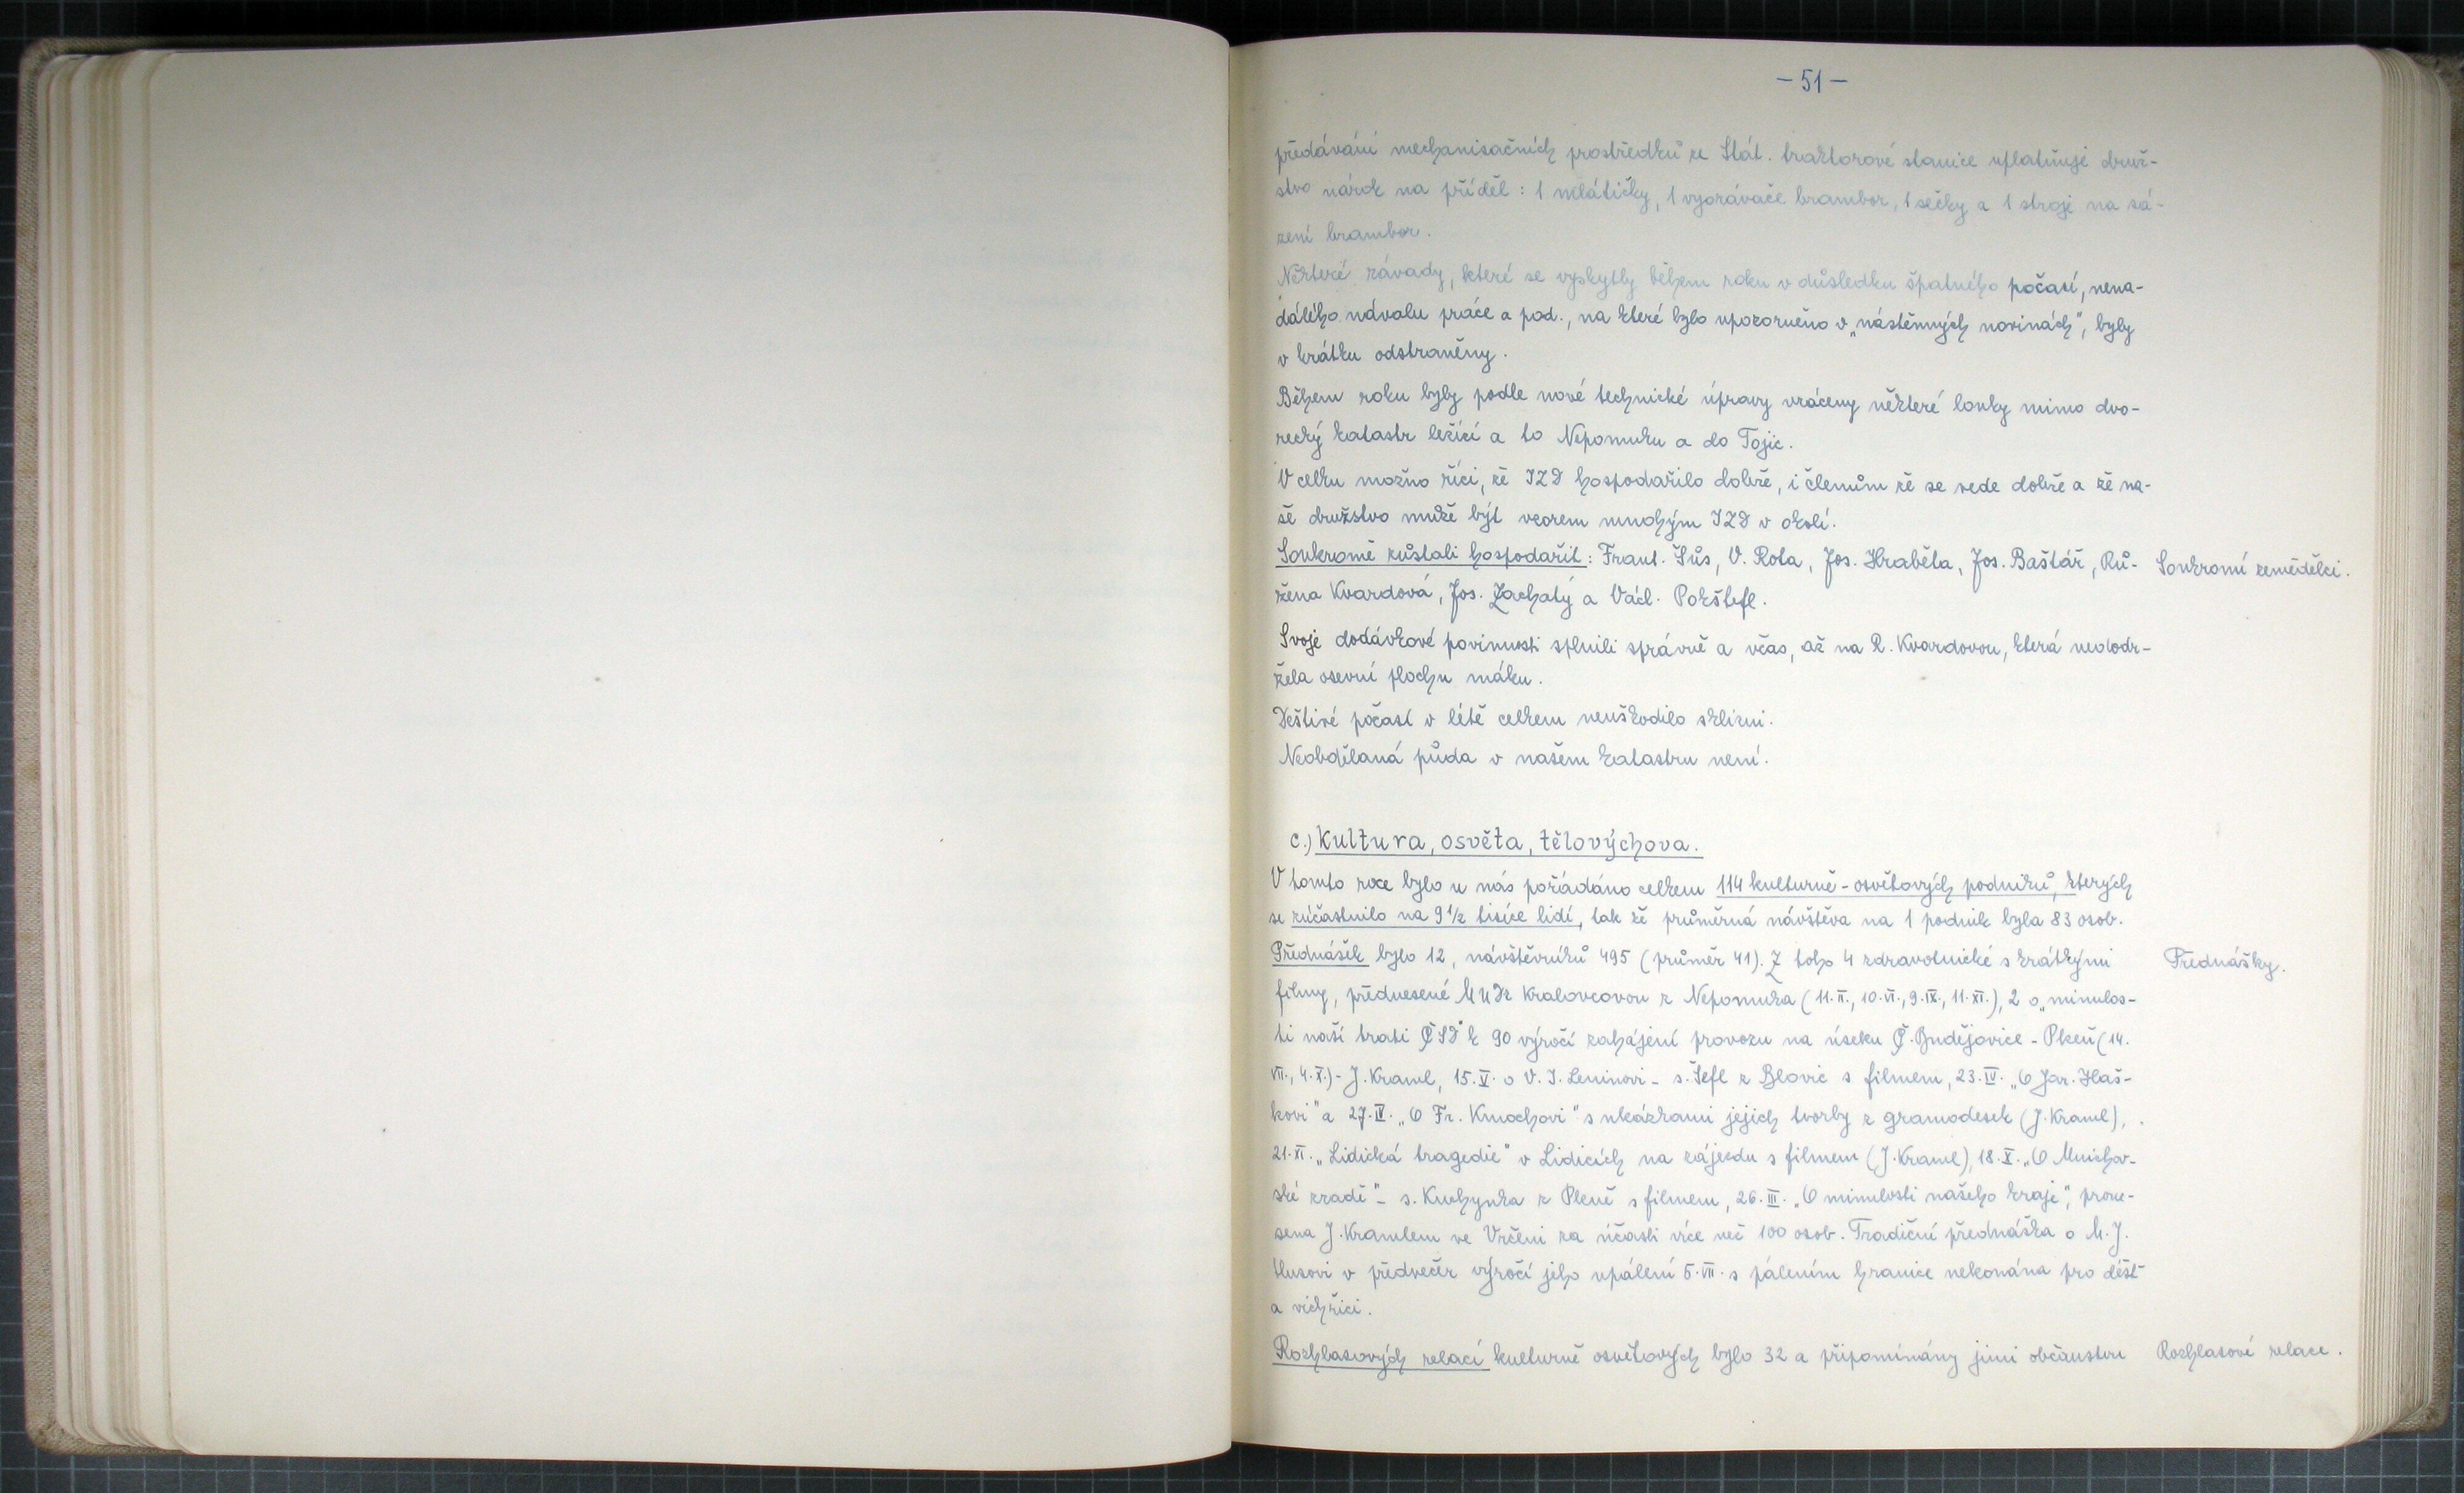 - 51 -
předávání mechanisačních prostředků ze Stát. traktorové stanice uplatňuje druž-
stvo nárok na příděl: 1 mlátičky, 1 vyorávače brambor, 1 sečky a 1 stroje na sá-
zení brambor.
Některé závady, které se vyskytly během roku v důsledku špatného počasí, nena-
dálého návalu práce a pod., na které bylo upozorněno v „nástěnných novinách", byly
v krátku odstraněny.
Během roku byly podle nové technické úpravy vráceny některé louky mimo dvo-
recký katastr ležící a to Nepomuku a do Tojic.
V celku možno říci, že JZD hospodařilo dobře, i členům že se vede dobře a že na-
še družstvo může být vzorem mnohým JZD v okolí.
Soukromě zůstali hospodařit: Frant. Šůs, V. Rota, Jos. Hraběta, Jos. Baštář, Rů- Soukromí zemědělci.
žena Kvardová, Jos. Zachatý a Václ. Pokštefl.
Svoje dodávkové povinnosti splnili správně a včas, až na R. Kvardovou, která nedodr-
žela osevní plochu máku.
Deštivé počasí v létě celkem neuškodilo sklizni.
Neobdělaná půda v našem katastru není.
c.) Kultura, osvěta, tělovýchova.
V tomto roce bylo u nás pořádáno celkem 114 kulturně-osvětových podniků, kterých
se zúčastnilo na 9 1/2 tisíce lidí, tak že průměrná návštěva na 1 podnik byla 83 osob.
Přednášek bylo 12, návštěvníků 495 (průměr 41). Z toho 4 zdravotnické s krátkými Přednášky.
filmy, přednesené MUDr Kralovcovou z Nepomuka (11.II., 10.VI., 9.IX., 11.XI.), 2 o „minulos-
ti naší trati ČSD" k 90 výročí zahájení provozu na úseku Č. Budějovice - Plzeň (14.
VII., 4.X.) - J. Kraml, 15.V. o V. I. Leninovi - s. Šefl z Blovic s filmem, 23.IV. „O Jar. Haš-
kovi" a 27.IV. „O Fr. Kmochovi" s ukázkami jejich tvorby z gramodesek (J. Kraml),
21.VI. „Lidická tragedie" v Lidicích na zájezdu s filmem (J. Kraml), 18.X. „O Mnichov-
ské zradě" - s. Kuchynka z Plzně s filmem, 26.III. „O minulosti našeho kraje", prone-
sena J. Kramlem ve Vrčeni za účasti více než 100 osob. Tradiční přednáška o M. J.
Husovi v předvečer výročí jeho upálení 5.VII. s pálením hranice nekonána pro déšť
a vichřici.
Rozhlasových relací kulturně osvětových bylo 32 a připomínány jimi občanstvu Rozhlasové relace.